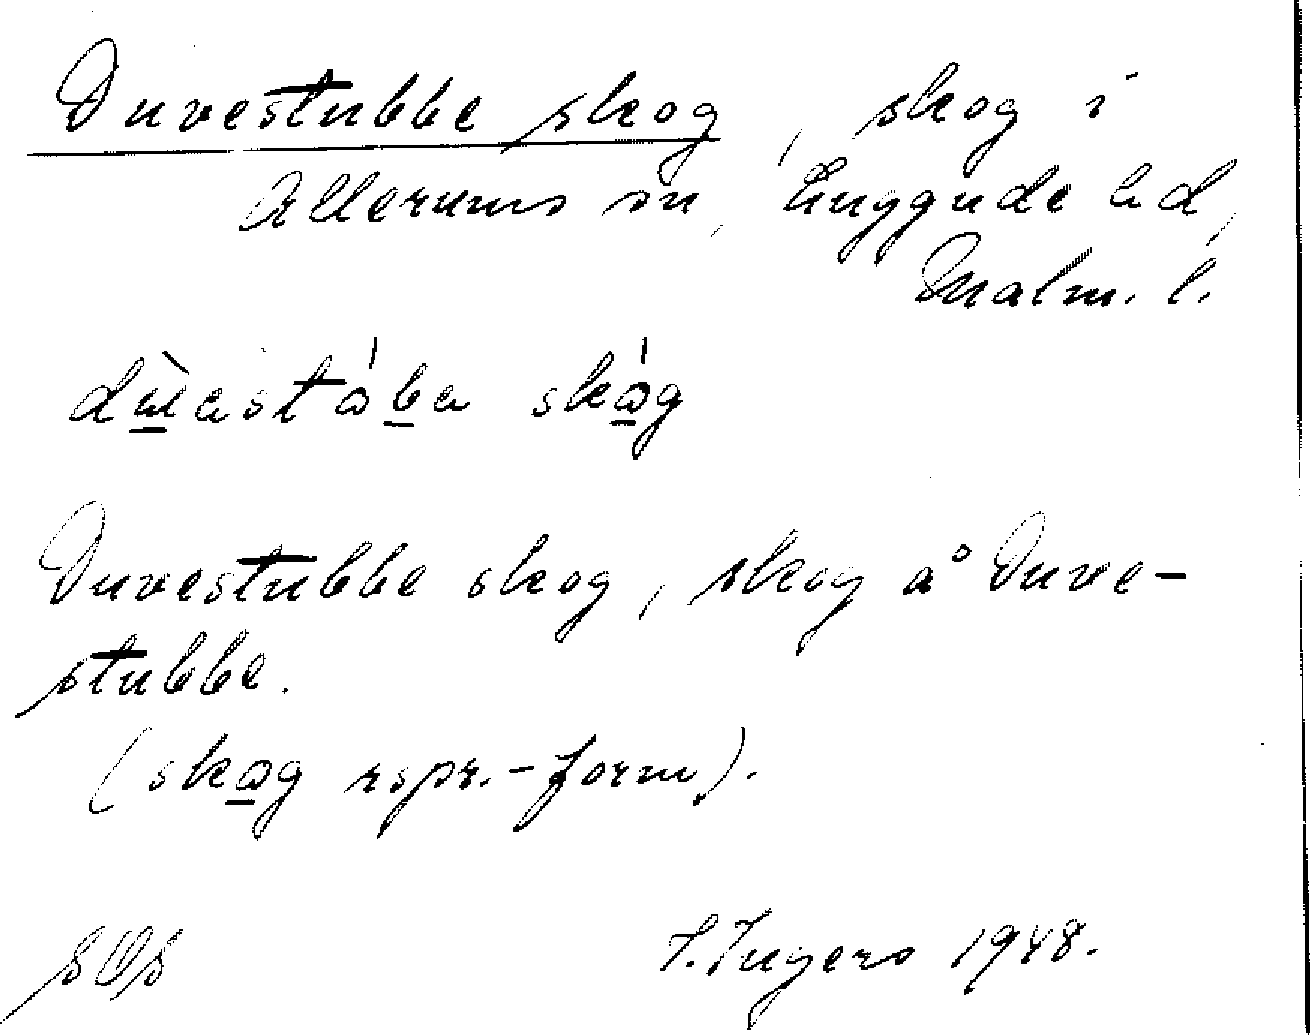 Duvestubbe skog, skog i
Allerums sn, Luggude hd,
Malm. l.
skog
Duvestubbe skog, skog å Duve-
stubbe.
(skog rspr.-form).
I. Ingers 1948.